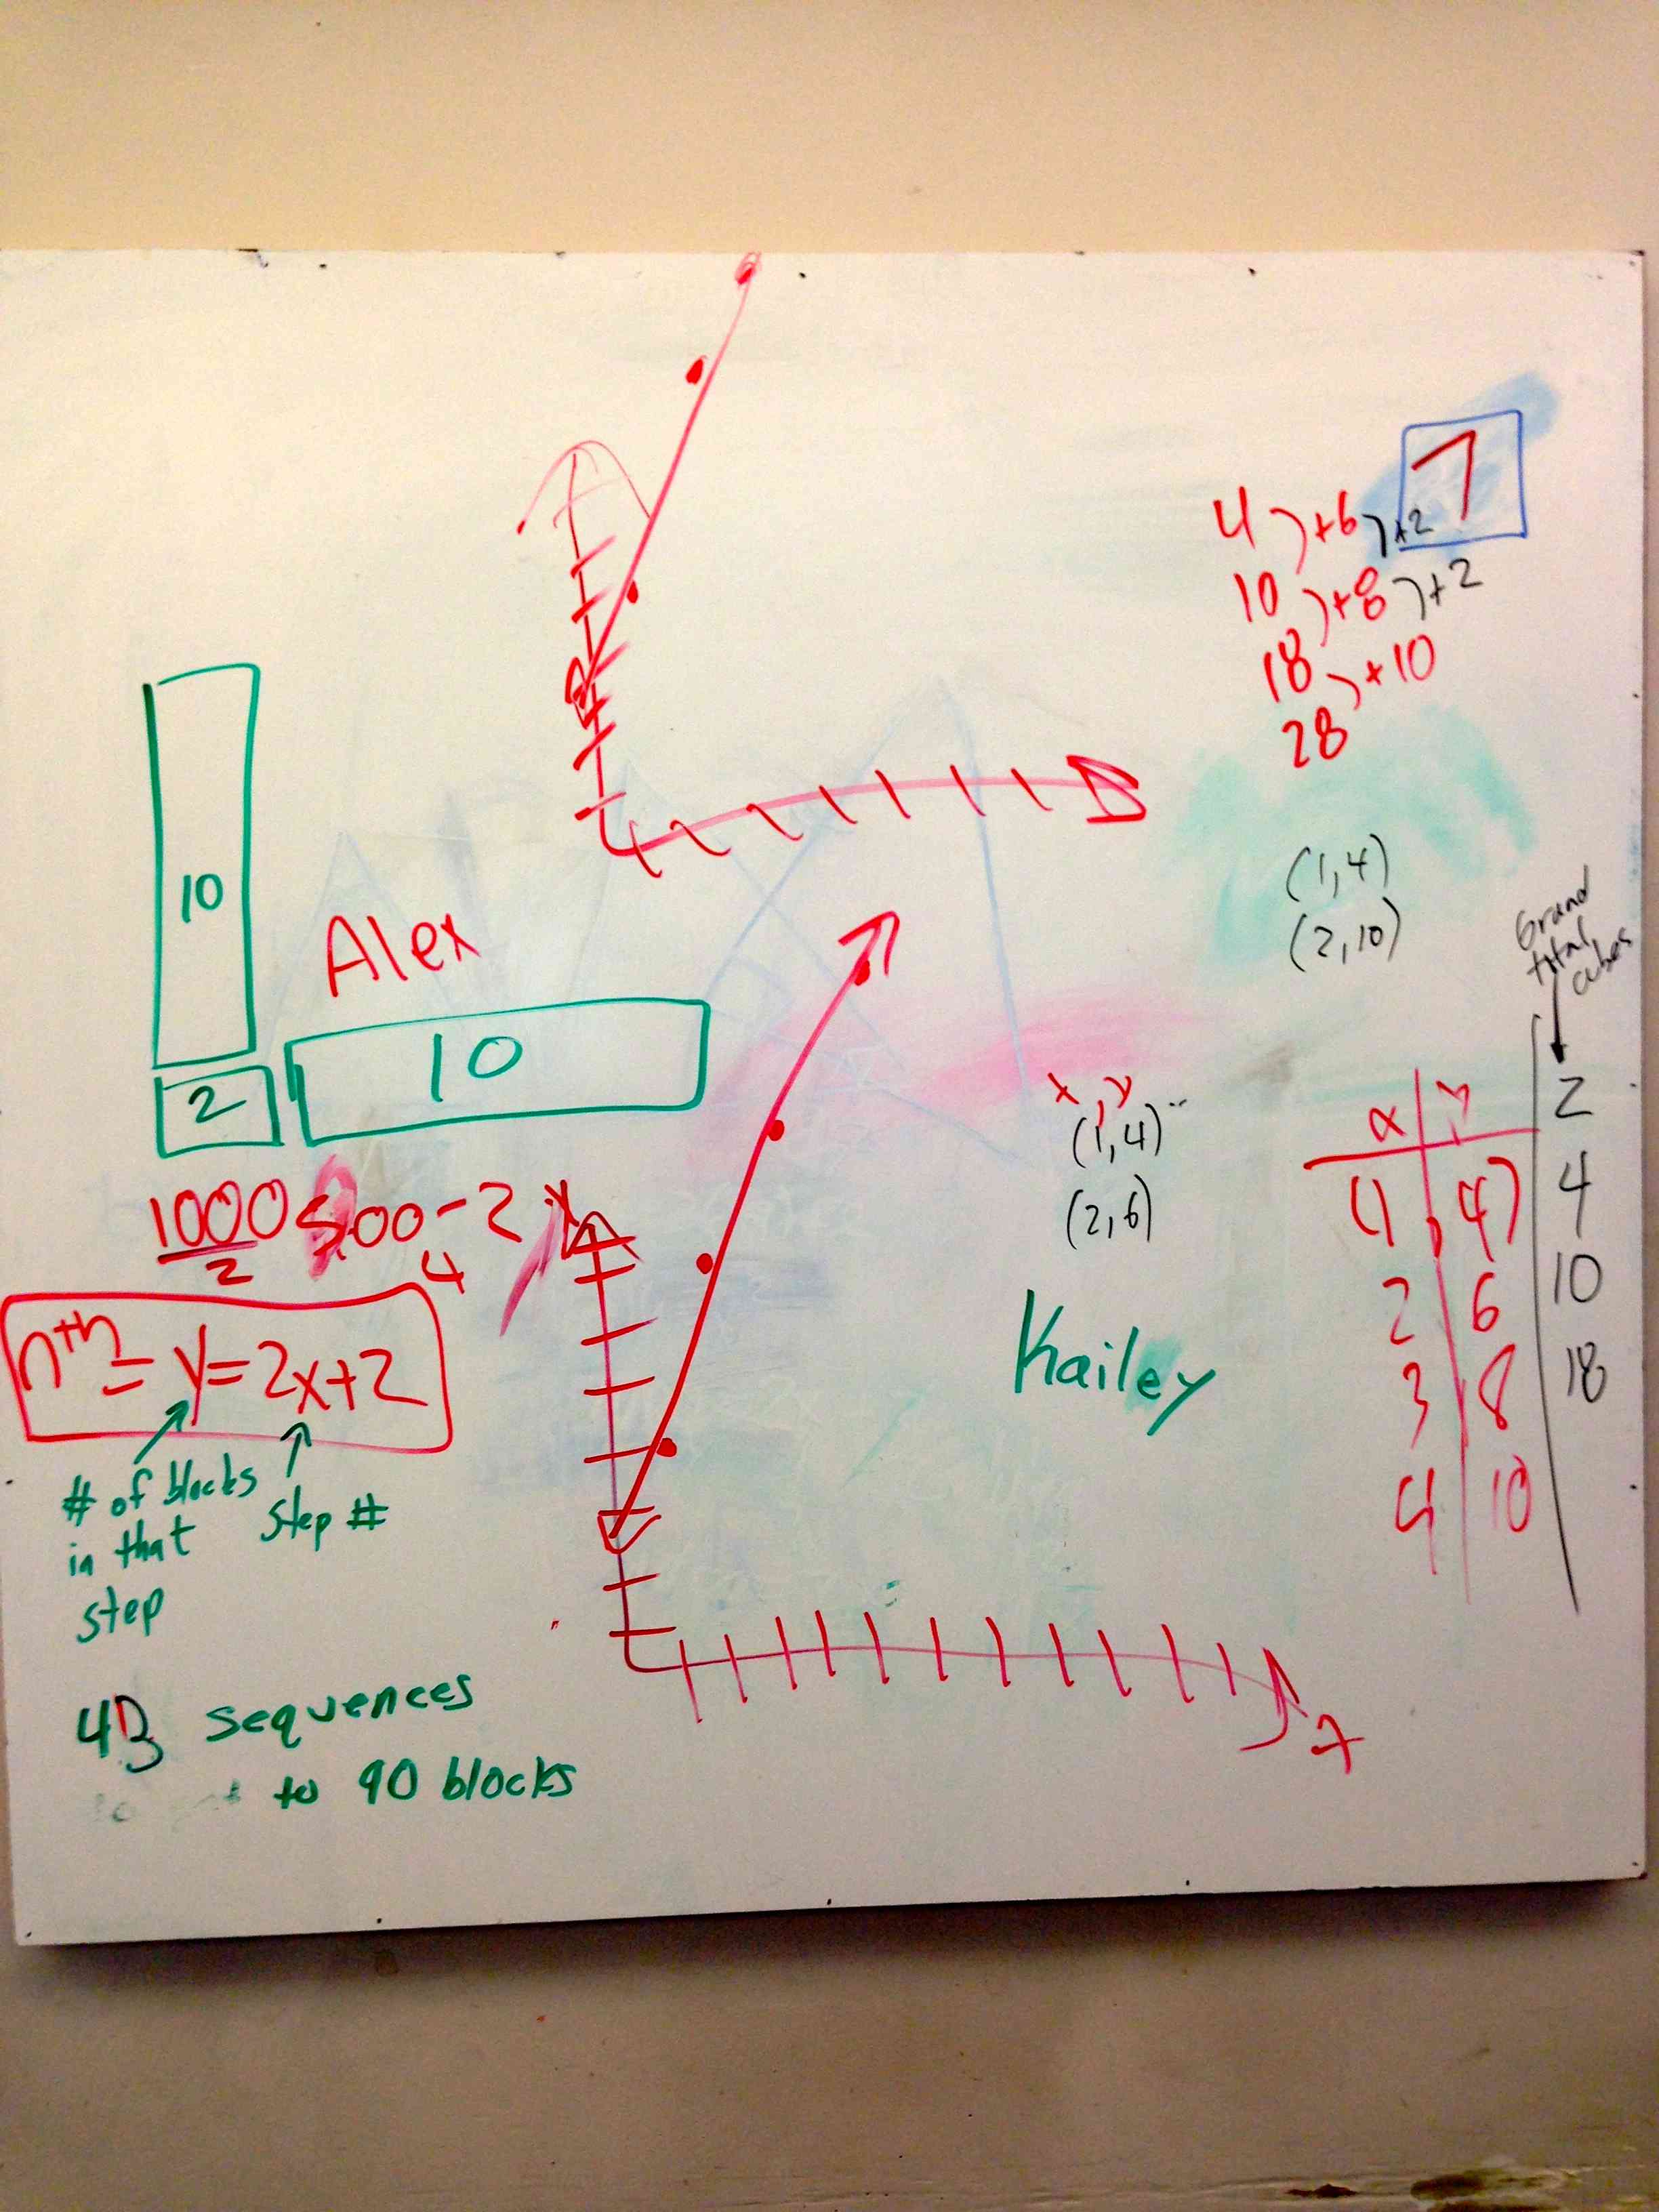 7
4 ) +6 ) +2
10 ) +8 ) +2
18 ) +10
28
10
Alex
(1,4)
(2,10)
Grand
total
cubes
10
2
x, y
(1,4)
(2,6)
x y
2
(1, 4) 4
2 6 10
3 8 18
4 10
1000
2
500-2
4
y
nth = y=2x+2
# of blocks
in that
step
step #
Kailey
x
43 sequences
to 90 blocks